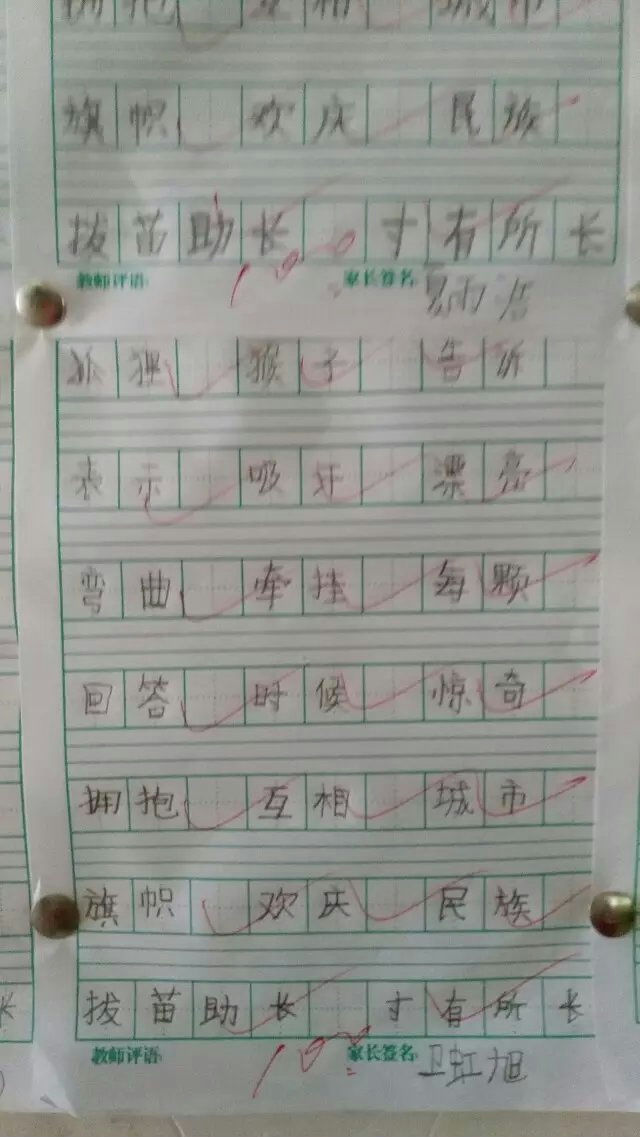 拥抱 互相 城市
旗帜 欢庆 民族
拔苗助长 寸有所长
教师评语: 100 家长签名:
狐狸 猴子 告诉
表示 吸好 漂亮
弯曲 牵挂 每颗
回答 时候 惊奇
拥抱 互相 城市
旗帜 欢庆 民族
拔苗助长 寸有所长
教师评语: 100 家长签名: 卫虹旭